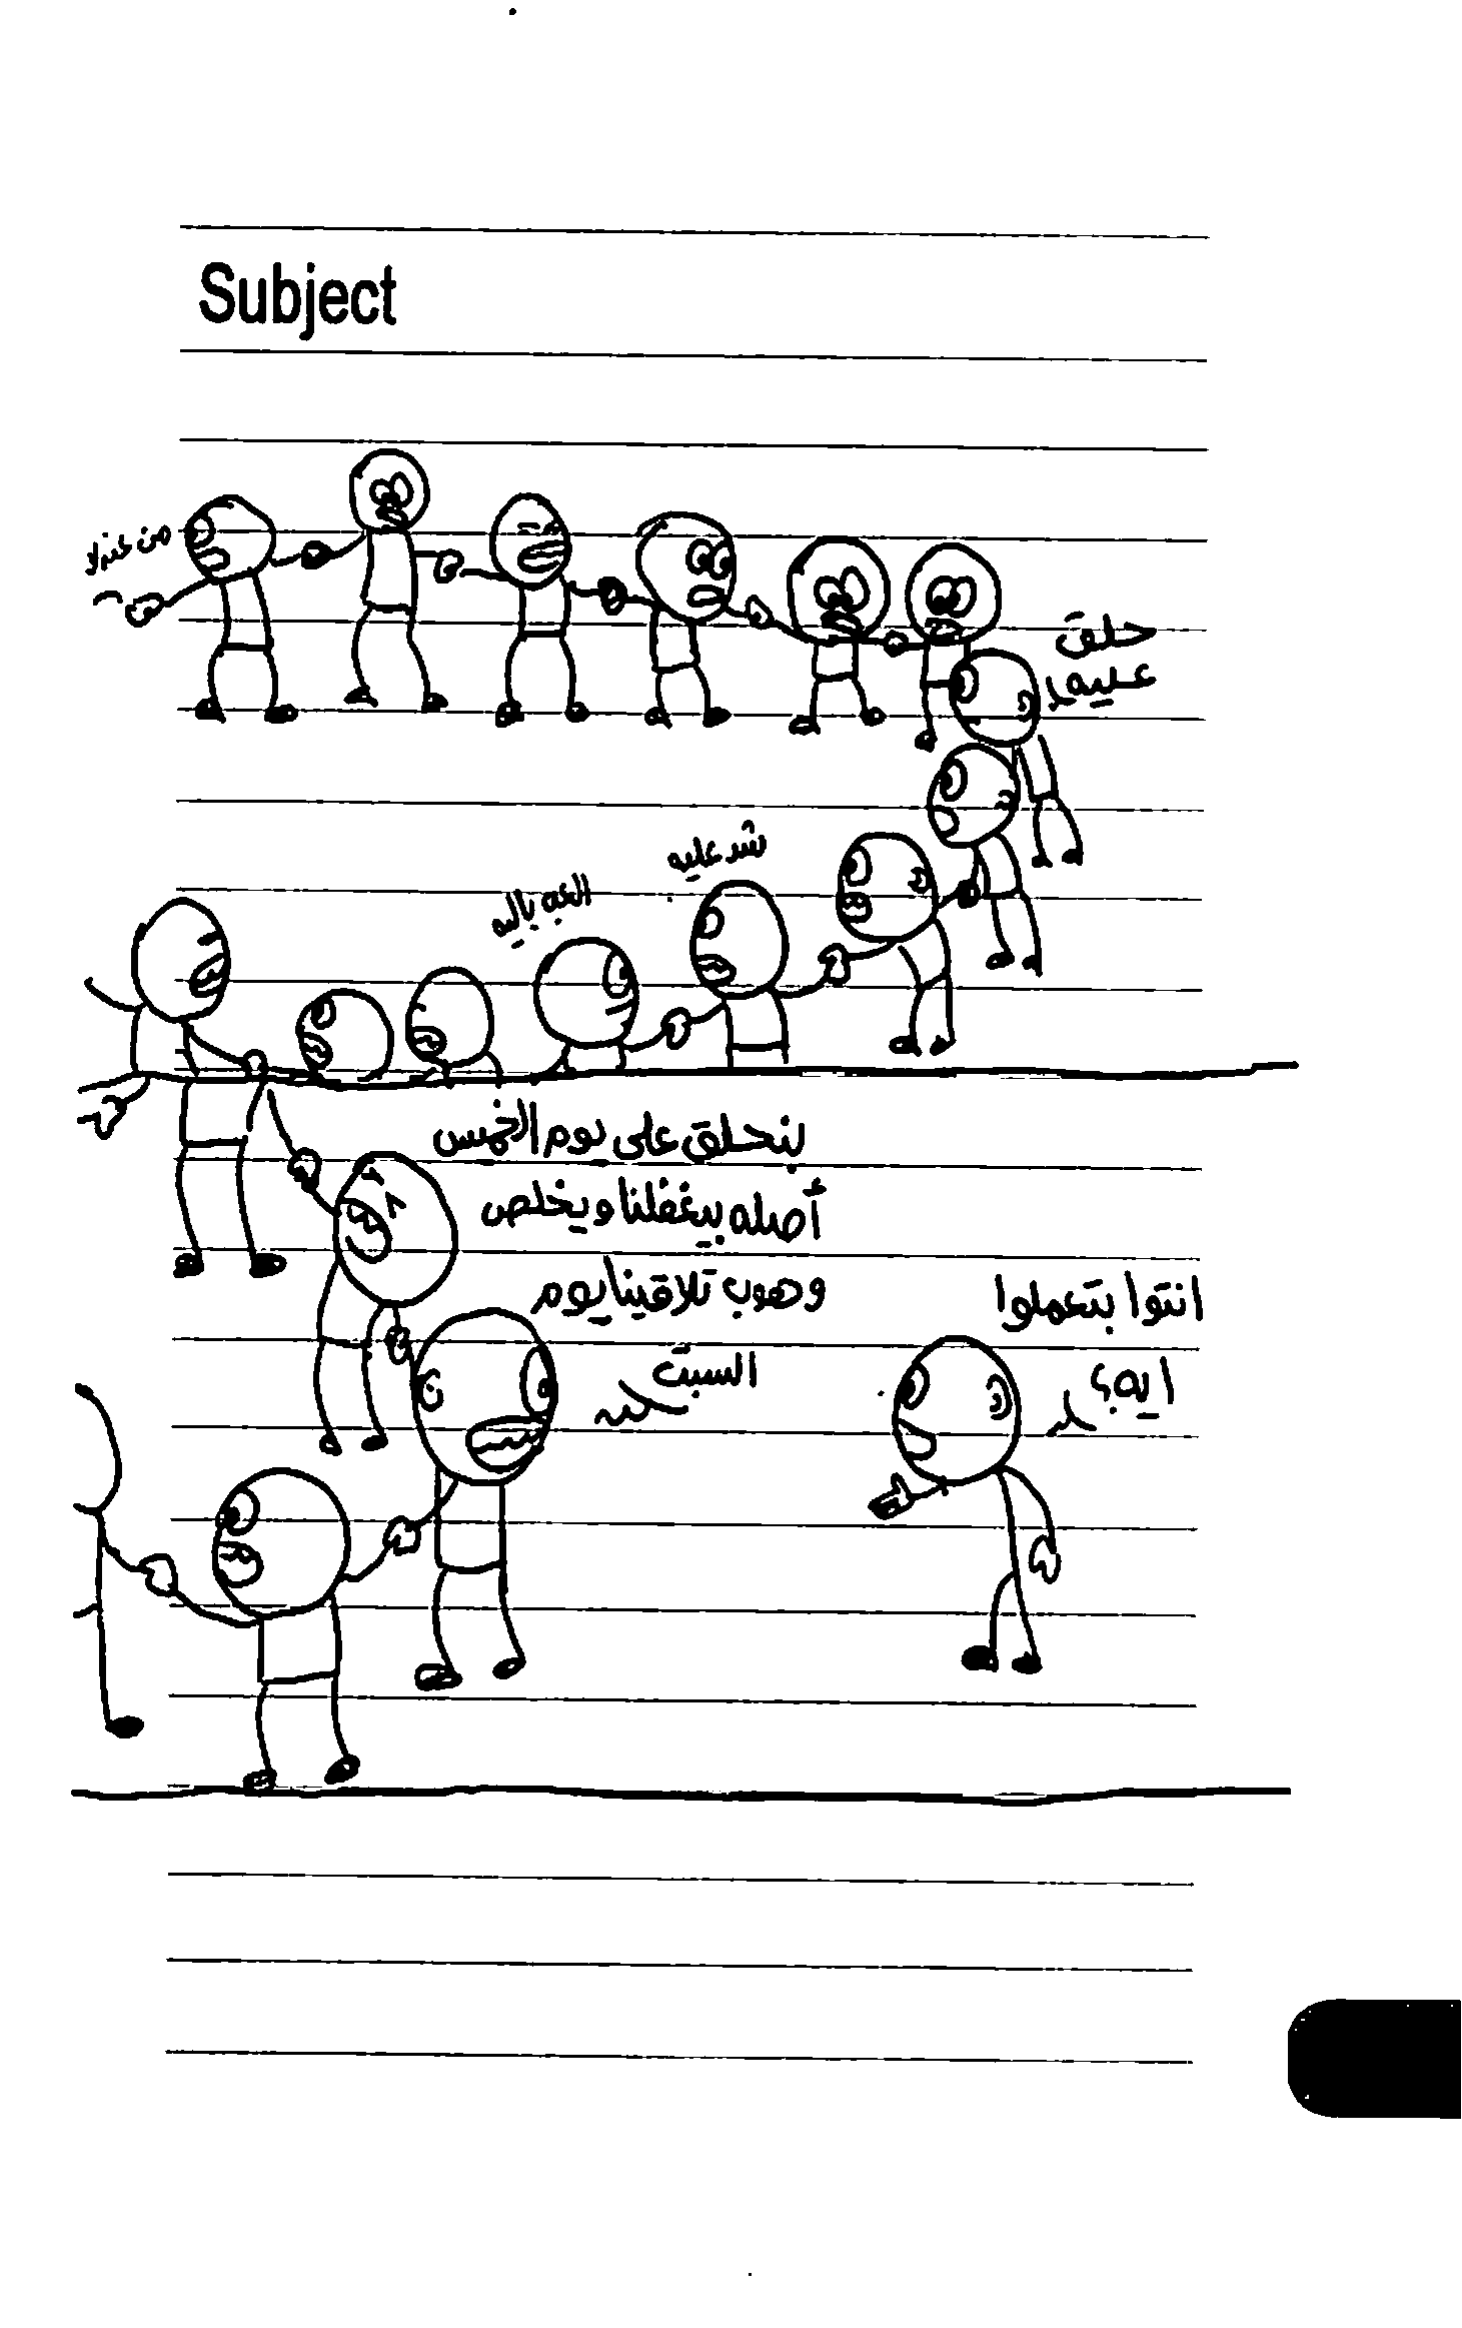 Subject
من عندك
حلق
عليه
شد عليه
العبه باليه
بنحلق على يوم الخميس
أصله بيغفلنا ويخلص
وهوب تلاقينا يوم
السبت
انتوا بتعملوا
ايه؟